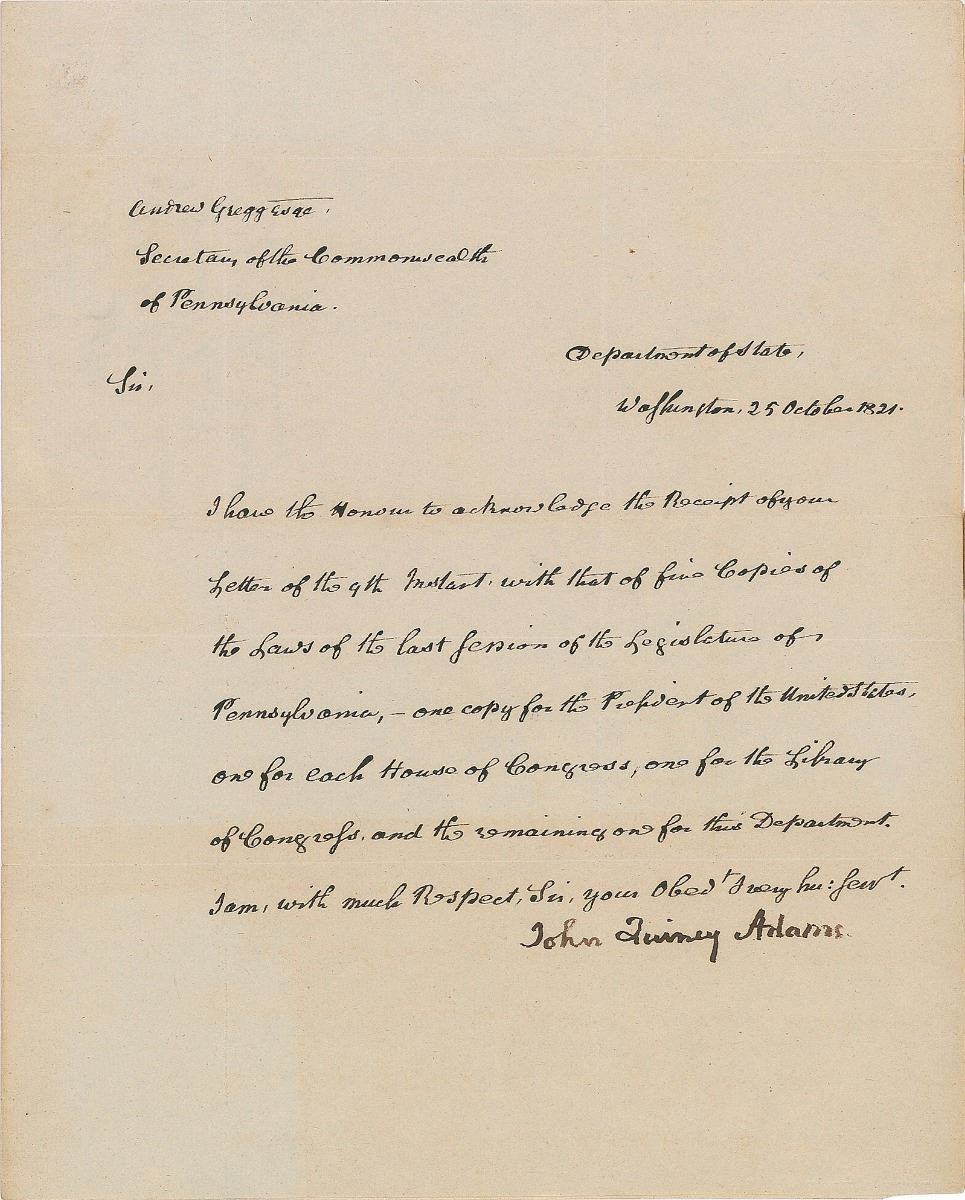 Andrew Gregg Esqe.
Secretary of the Commonwealth
of Pennsylvania.
Department of State,
Sir,
Washington, 25 October 1821.
I have the Honour to acknowledge the Receipt of your
Letter of the 9th Instant. with that of five Copies of
the Laws of the last Session of the Legislature of
Pennsylvania, – one copy for the President of the United States,
one for each House of Congress, one for the Library
of Congress, and the remaining one for this Department.
I am, with much Respect, Sir, your Obedt & very hu: Servt.
John Quincy Adams.